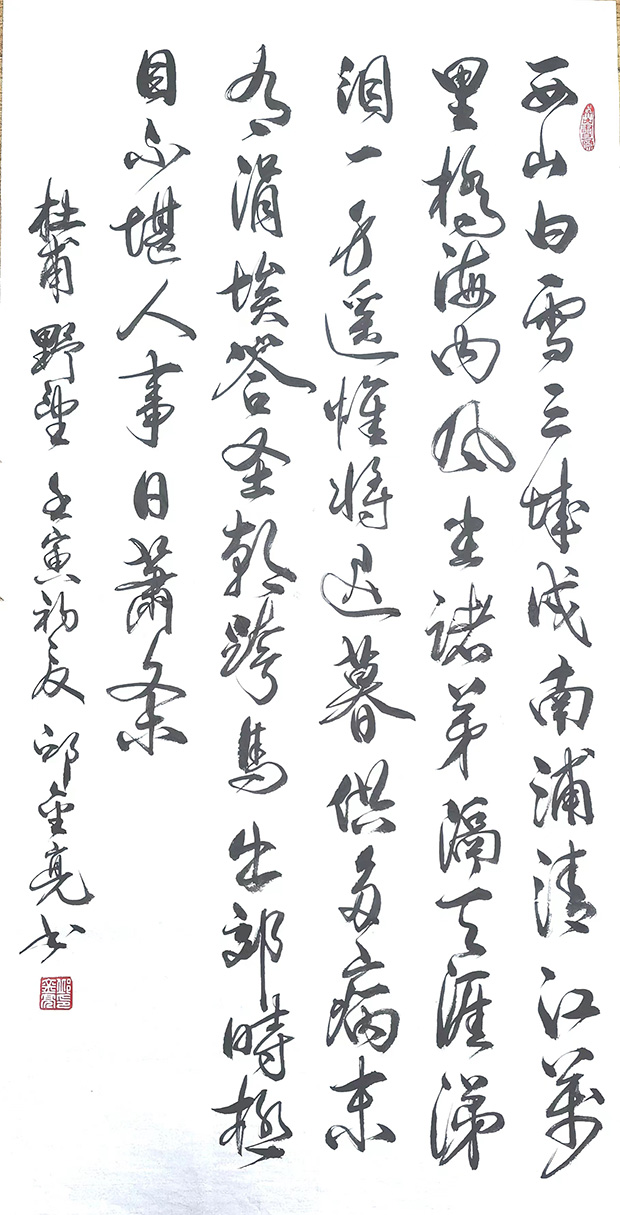 西山白雪三城戍南浦清江萬
里橋海内风尘諸弟隔天涯涕
泪一身遥惟将迟暮供多病未
有涓埃答圣朝跨馬出郊時極
目不堪人事日蕭条
杜甫野望壬寅初夏邱金亮书